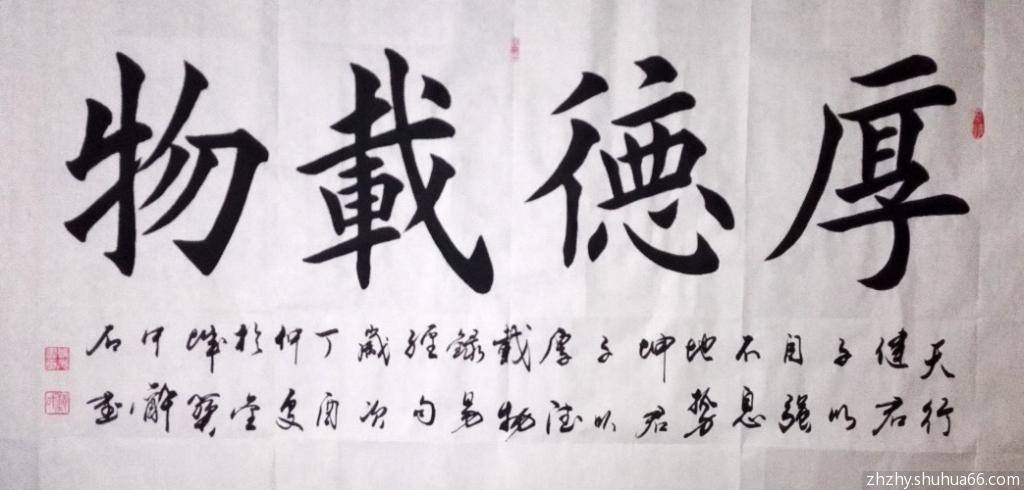 厚德載物
天行
健君
子以
自强
不息
地勢
坤君
子以
厚德
載物
錄易
經句
歲次
丁酉
仲夏
於
書
zhzhy.shuhua66.com